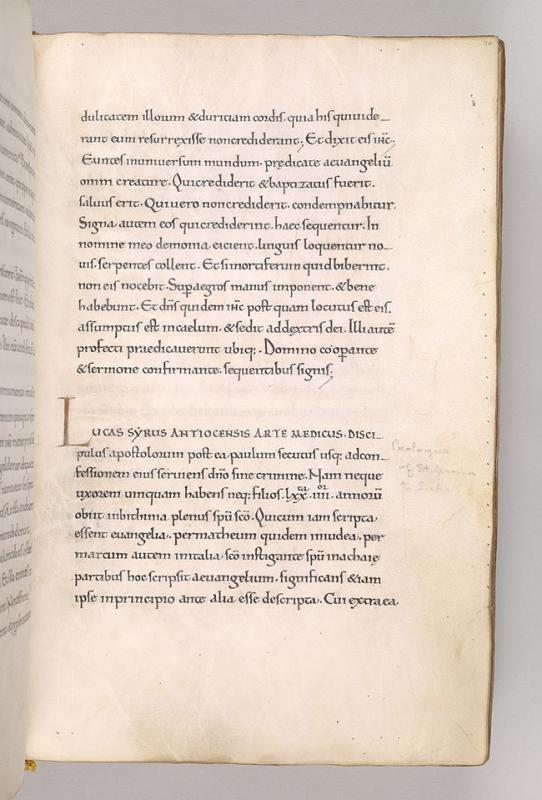 dulitatem illorum &duritiam cordis. quia his qui vide_
rant eum resurrexisse noncrediderant; Et dixit eis ihc;
Euntes inuniversum mundum. predicate aeuangeliū
omni creature. Quicrediderit &baptizatus fuerit.
saluus erit. Qui uero noncrediderit. condempnabitur.
Signa autem eos quicrediderint. haec sequentur. In
nomine meo demonia eicient. linguis loquentur no_
uis. serpentes tollent. Et si mortiferum quid biberint.
non eis nocebit. Sup aegros manus imponent. &bene
habebunt. Et dn̄s quidem ihc̄ post quam locutus est eis.
assumptus est incaelum. &sedit addextris dei. Illi autē
profecti praedicauerunt ubiq;. Domino cooperante
&sermone confirmante. sequentibus signis;
LUCAS SYRUS ANTIOCENSIS ARTE MEDICUS. DISCI_
pulus apostolorum post ea paulum secutus usq; adcon_
fessionem eius seruiens dn̄o sine crimine. Nam neque
uxorem umquam habens neq; filios. lxx. iiii. annorū
obiit inbithinia plenus spū scō. Qui cum iam scripta
essent euangelia. per matheum quidem iniudea. per
marcum autem initalia scō instigante spū inachaie
partibus hoc scripsit aeuangelium. significans &iam
ipse inprincipio ante alia esse descripta. Cui extra ea
Prologue
of St. Jerome
to Luke